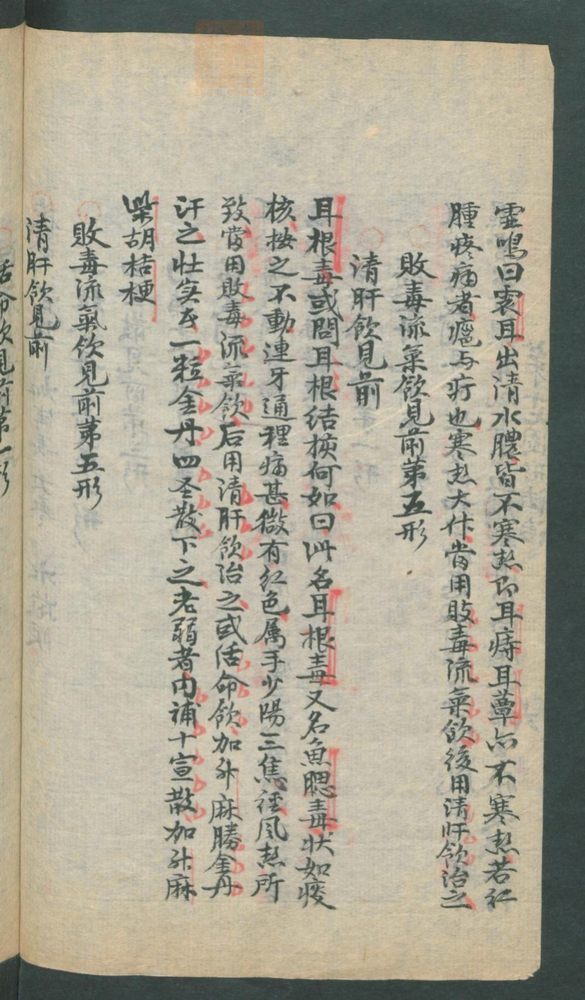 雲鳴曰震耳出清水膿皆不寒熱即耳痔耳蕈亦不寒熱若紅
腫疼痛者癰与疔也寒热大作當用敗毒流氣飲後用清肝飲治之
敗毒流氣飲見前第五形
清肝飲見前
耳根毒或問耳根结核何如曰此名耳根毒又名魚腮毒状如痰
核按之不動連牙通裡痛甚微有紅色属手少陽三焦経風热所
致當用敗毒流氣飲后用清肝飲治之或活命飲加升麻勝金丹
汗之壮实者一粒金丹四圣散下之老弱者内補十宣散加升麻
柴胡桔梗
敗毒流氣飲見前第五形
清肝飲見前
活命飲見前第一形